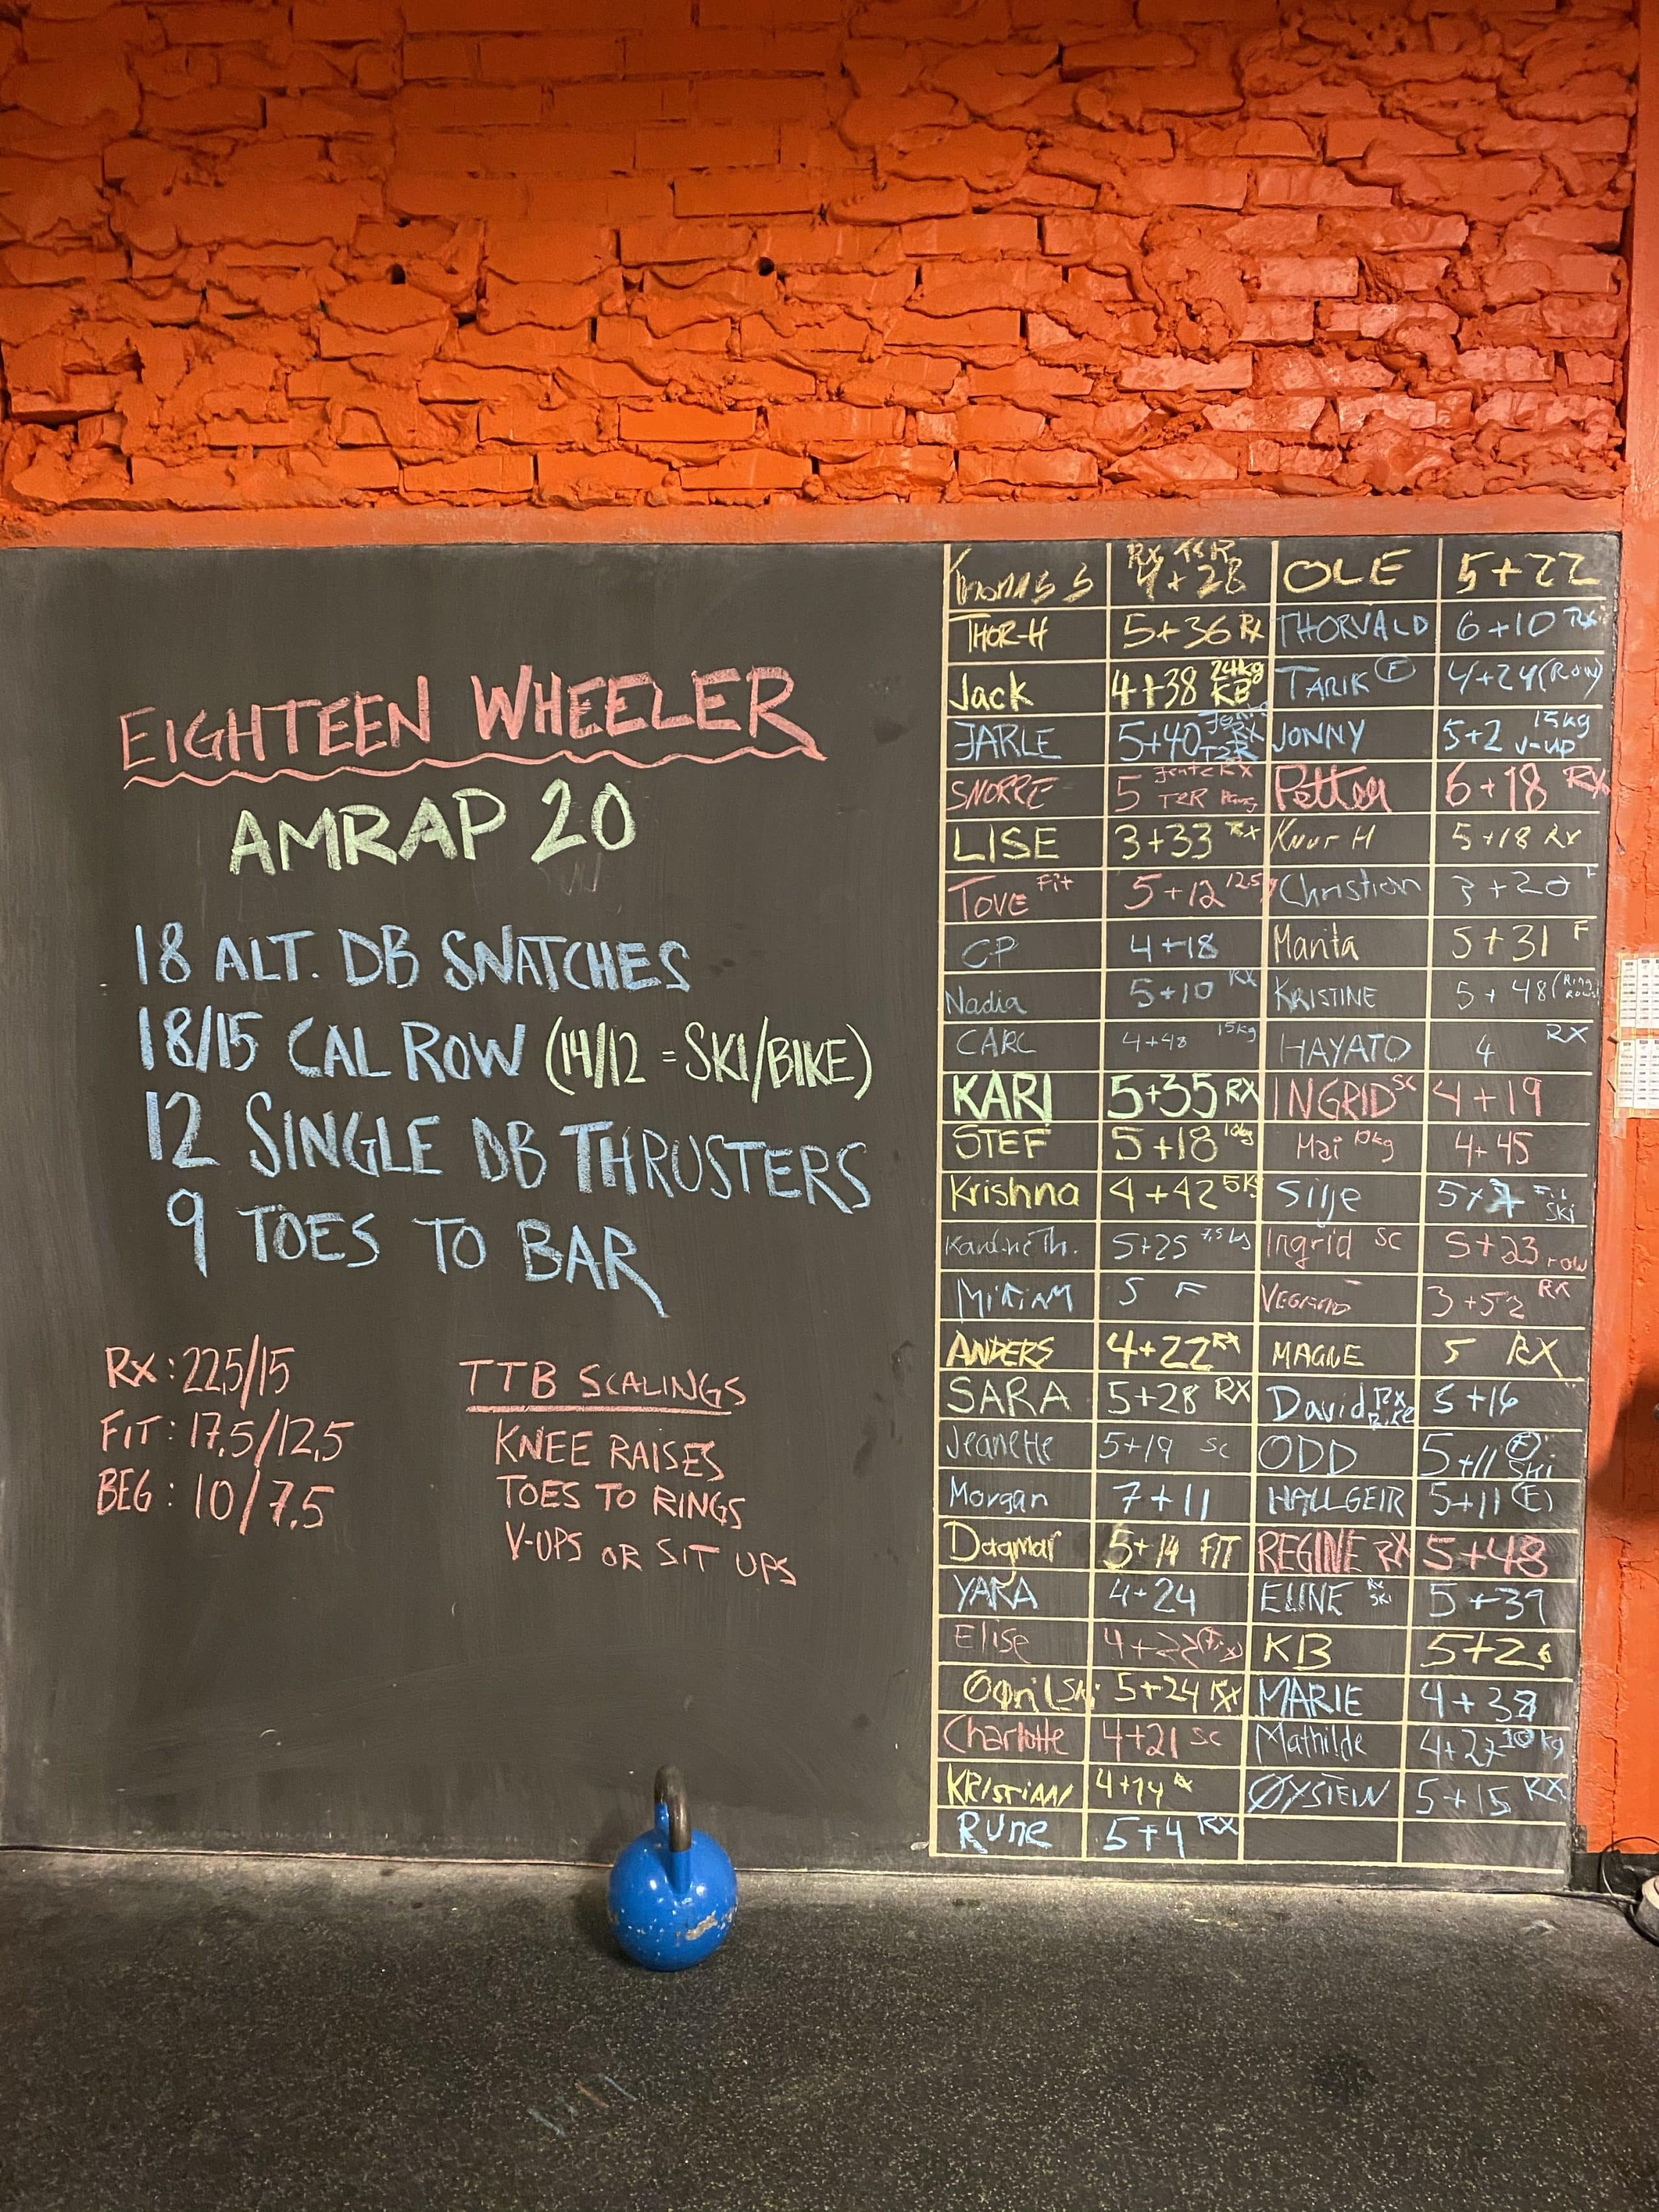 EIGHTEEN WHEELER
AMRAP 20
18 ALT. DB SNATCHES
18/15 CAL ROW (14/12 = SKI/BIKE)
12 SINGLE DB THRUSTERS
9 TOES TO BAR
RX: 22,5/15
FIT: 17,5/12,5
BEG: 10/7,5
TTB SCALINGS
KNEE RAISES
TOES TO RINGS
V-UPS OR SIT UPS
RX 4+28 OLE 5+22
THOR-H 5+36 RX THORVALD 6+10 RX
Jack 4+38 24kg KB TARIK F 4+24 (ROW)
JARLE 5+40 RX T2R JONNY 5+2 15kg V-UP
SNORRE 5 T2R Petter 6+18 RX
LISE 3+33 RX KNUT H 5+18 RX
TOVE Fit 5+12 12.5 Christian 3+20 F
CP 4+18 Marita 5+31 F
Nadia 5+10 RX KRISTINE 5+48 (Ring rows)
CARL 4+48 15kg HAYATO 4 RX
KARI 5+35 RX INGRID SC 4+19
STEF 5+18 10kg Mai 10kg 4+45
Krishna 4+42 5kg Silje 5+7 SKI
5+25 7,5kg Ingrid SC 5+23 row
MIRIAM 5 F VEGARD 3+52 RX
ANDERS 4+22 RX MAGNE 5 RX
SARA 5+28 RX David RX Bike 5+16
Jeanette 5+19 SC ODD 5+11 (F) SKI
Morgan 7+11 HALLGEIR 5+11 (F)
Dagmar 5+14 FIT REGINE RX 5+48
YARA 4+24 ELINE RX SKI 5+39
Elise 4+22 KB 5+26
5+24 RX MARIE 4+38
Charlotte 4+21 SC Mathilde 4+27 10kg
KRISTIAN 4+14 RX ØYSTEIN 5+15 RX
Rune 5+4 RX